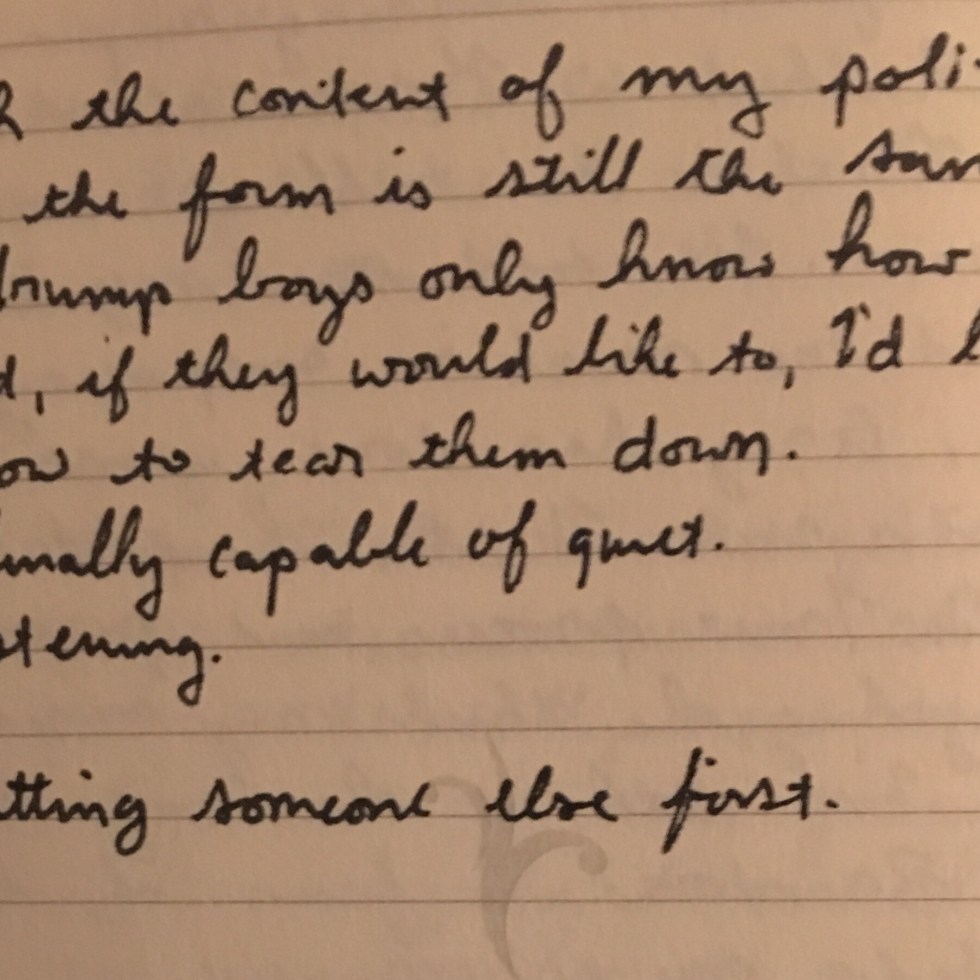 h the content of my poli-
the form is still the sam
trump boys only know how
d, if they would like to, I'd l
ow to tear them down.
inally capable of quiet.
stening.
tting someone else first.